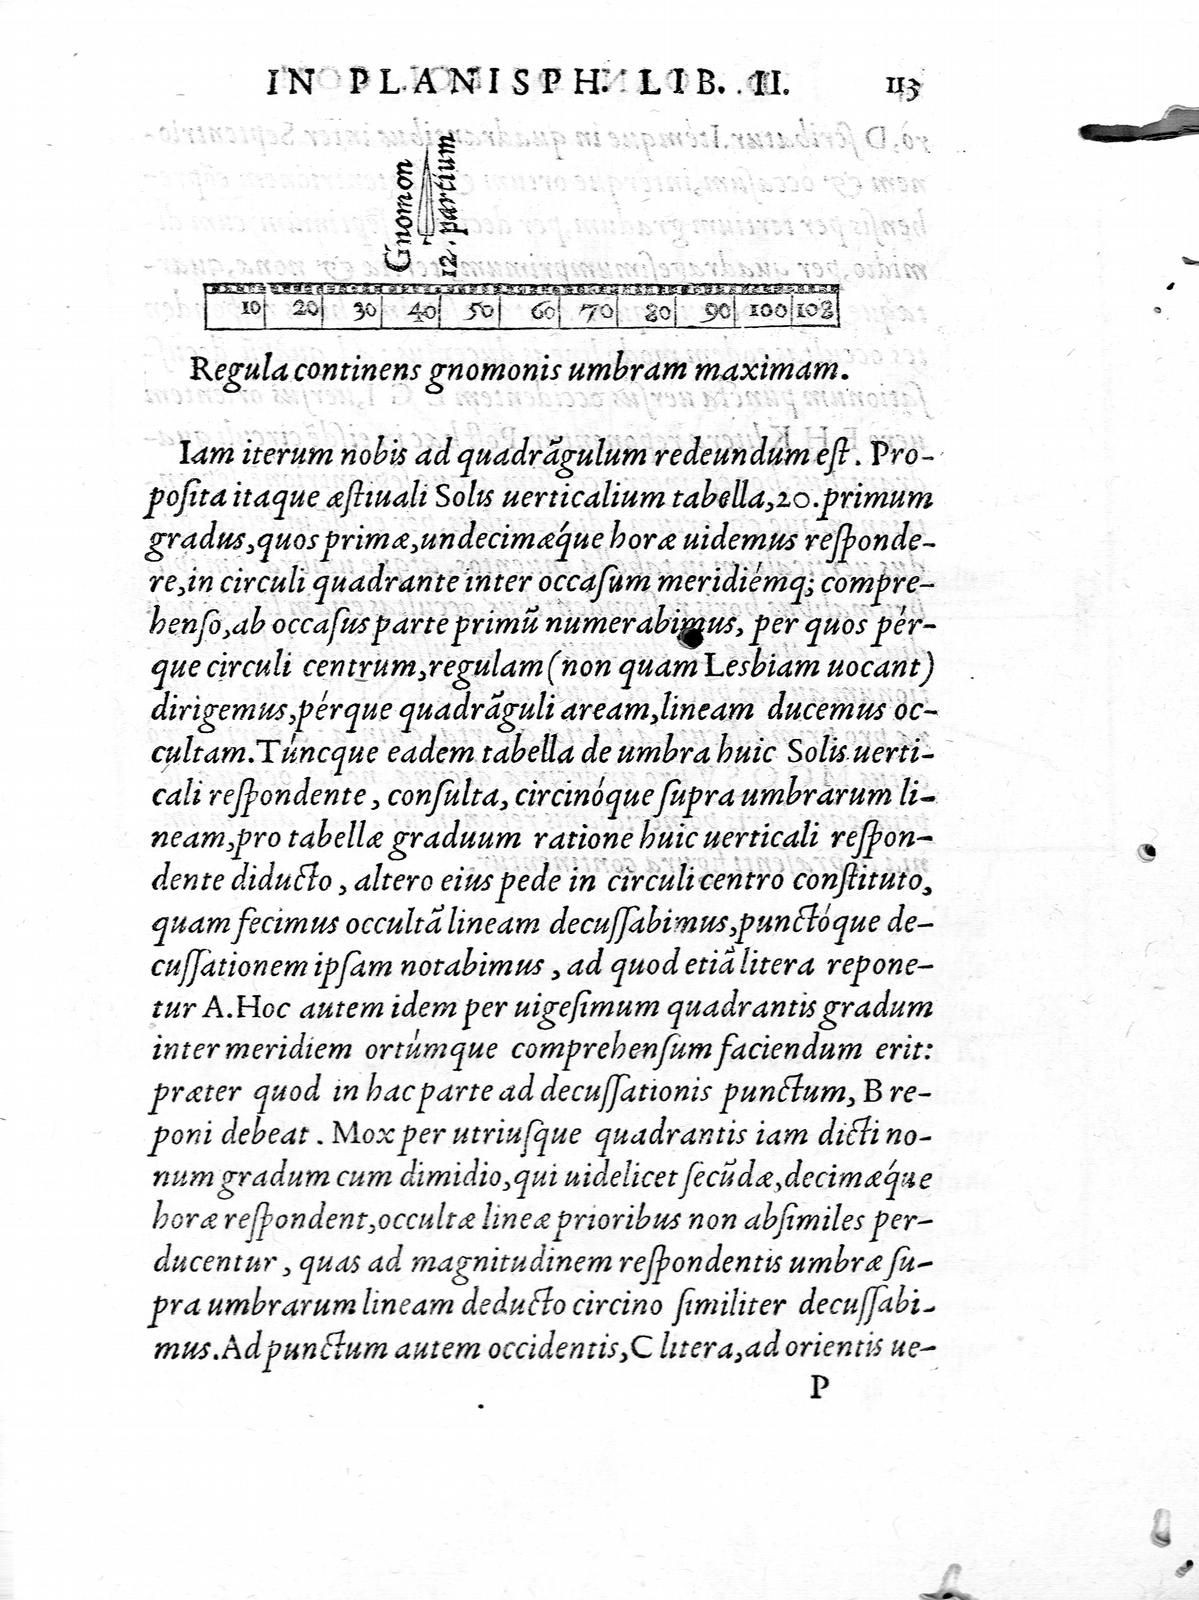 IN PLANISPH. LIB. II. 113
Gnomon
12. partium
10 20 30 40 50 60 70 80 90 100 108
Regula continens gnomonis umbram maximam.
Iam iterum nobis ad quadrãgulum redeundum eſt. Pro-
poſita itaque æſtiuali Solis uerticalium tabella, 20. primum
gradus, quos primæ, undecimæq́ue horæ uidemus reſponde-
re, in circuli quadrante inter occaſum meridiémq; compre-
henſo, ab occaſus parte primũ numerabimus, per quos pér-
que circuli centrum, regulam (non quam Lesbiam uocant)
dirigemus, pérque quadrãguli aream, lineam ducemus oc-
cultam. Túncque eadem tabella de umbra huic Solis uerti-
cali reſpondente, conſulta, circinóque ſupra umbrarum li-
neam, pro tabellæ graduum ratione huic uerticali reſpon-
dente diducto, altero eius pede in circuli centro conſtituto,
quam fecimus occultã lineam decuſſabimus, punctóque de-
cuſſationem ipſam notabimus, ad quod etiã litera repone-
tur A. Hoc autem idem per uigeſimum quadrantis gradum
inter meridiem ortúmque comprehenſum faciendum erit:
præter quod in hac parte ad decuſſationis punctum, B re-
poni debeat. Mox per utriuſque quadrantis iam dicti no-
num gradum cum dimidio, qui uidelicet ſecũdæ, decimæq́ue
horæ reſpondent, occultæ lineæ prioribus non abſimiles per-
ducentur, quas ad magnitudinem reſpondentis umbræ ſu-
pra umbrarum lineam deducto circino ſimiliter decuſſabi-
mus. Ad punctum autem occidentis, C litera, ad orientis ue-
P